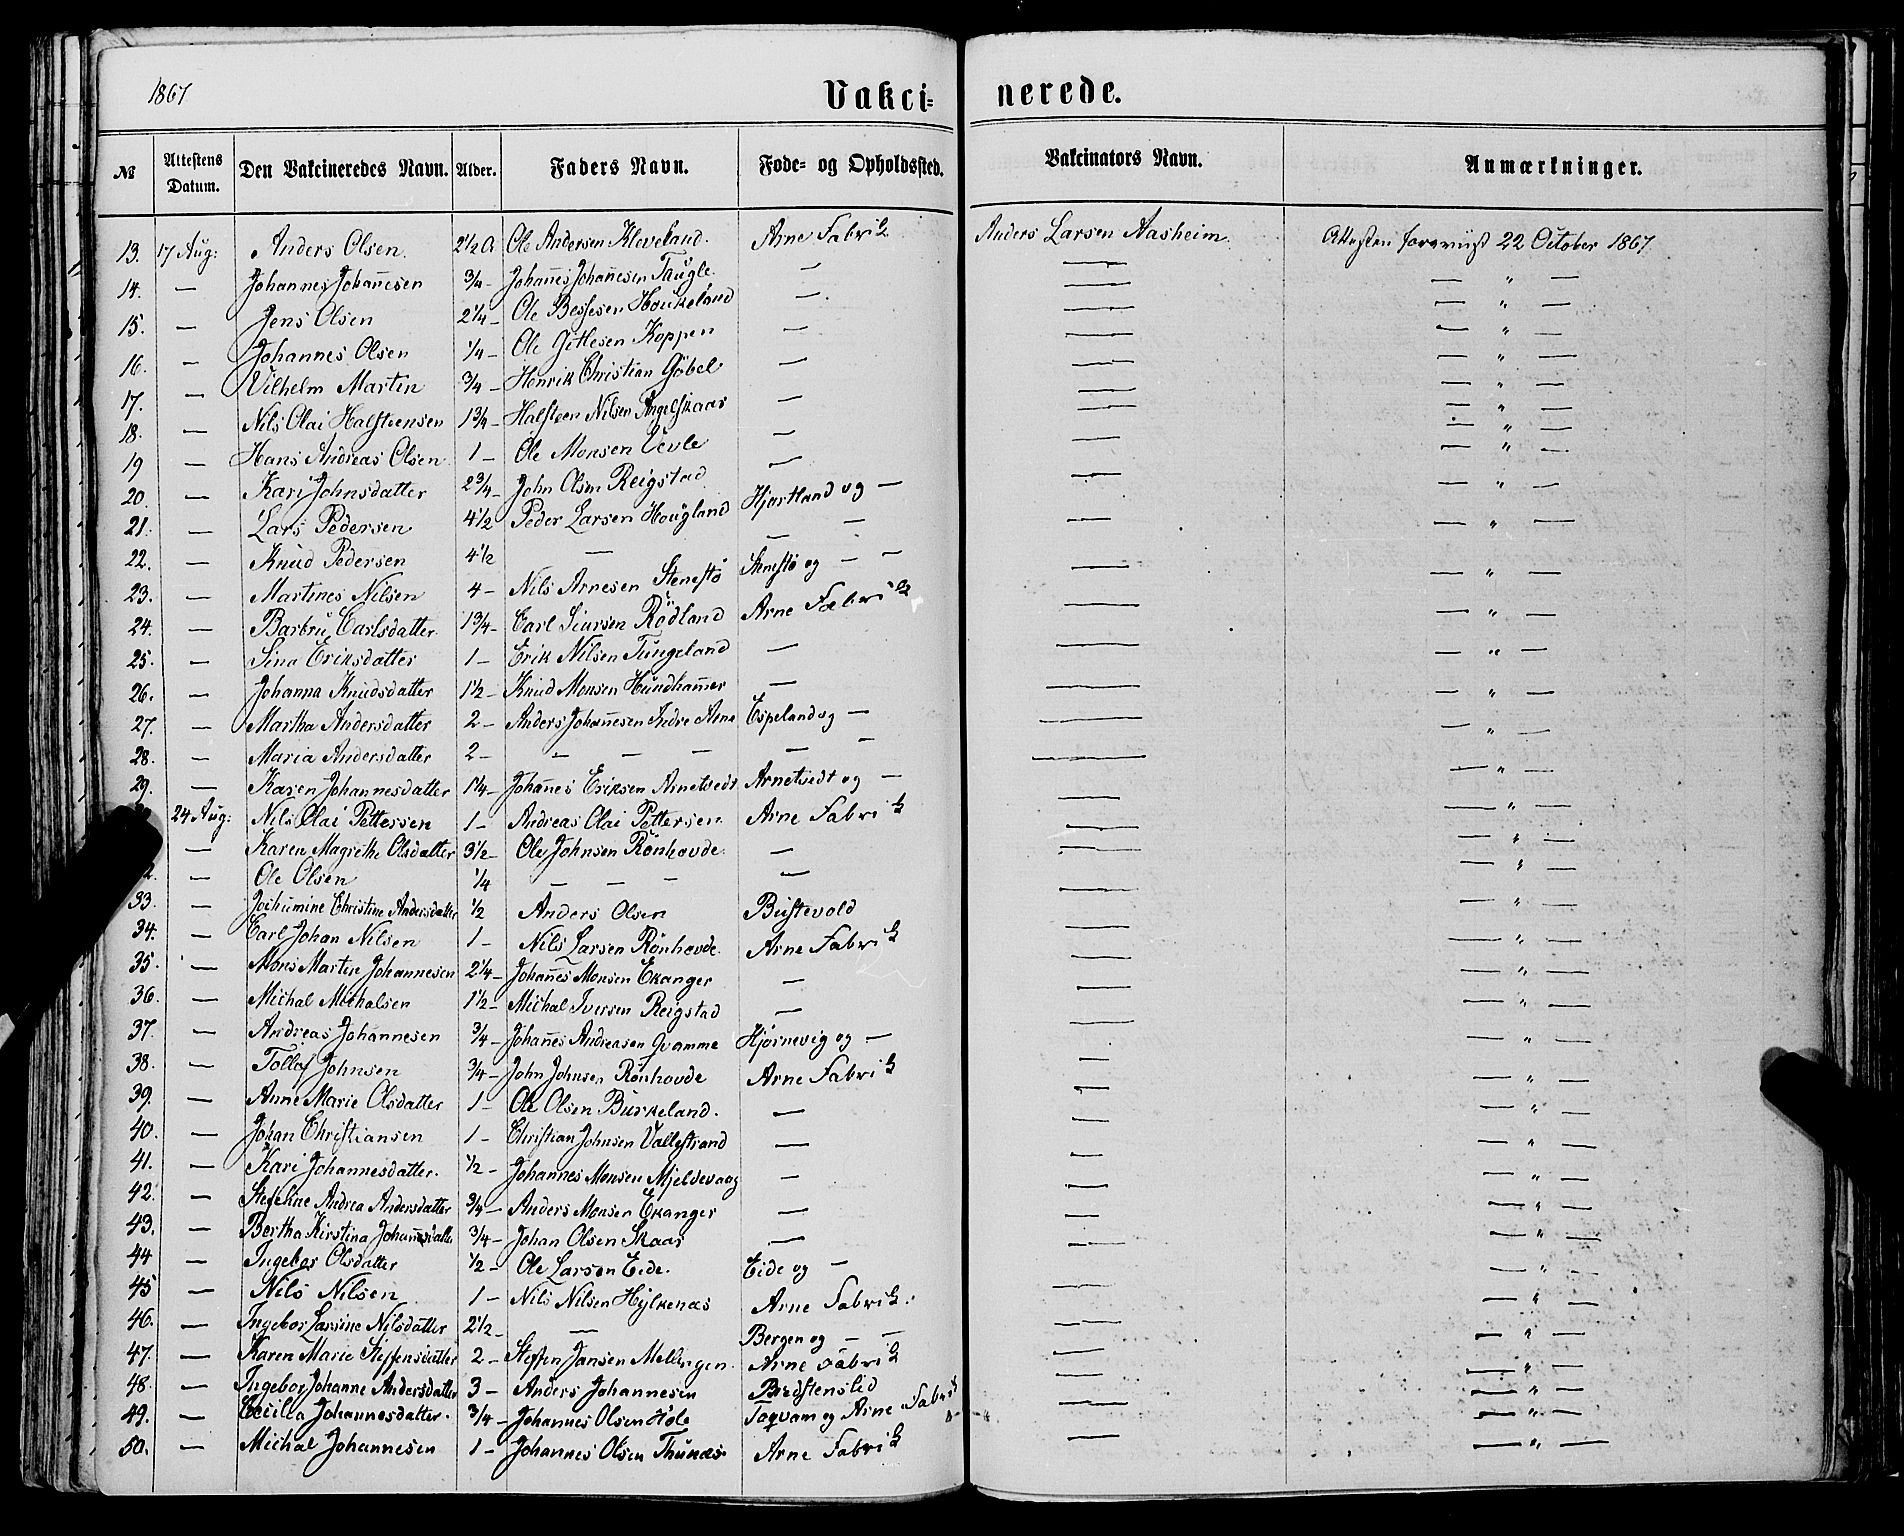 1867
Vakci-nerede.
№ Attestens Datum. Den Vakcineredes Navn. Alder. Faders Navn. Føde- og Opholdssted. Vakcinators Navn. Anmærkninger.
13. 17 Aug: Anders Olsen. 2½ A Ole Andersen Kleveland. Arne Fabrik Anders Larsen Aasheim. Attesten 22 October 1867
14. — Johannes Johan̄esen ¾ - Johan̄es Johan̄esen Taugle. — — — " —
15. — Jens Olsen 2¼ - Ole Bessesen Houkeland — — — " —
16. — Johannes Olsen ¼ - Ole Koppen — — — " —
17. — Vilhelm Martin ¾ - Henrik Christian Göbel — — — " —
18. — Nils Olai Halsteensen 1¾ - Halsteen Nilsen Angelskaar — — — " —
19 — Hans Andreas Olsen 1 - Ole Monsen Vevle — — — " —
20. — Kari Johnsdatter 2¾ - John Olsen Reigstad — — — " —
21. — Lars Pedersen 4½ Peder Larsen Hougland Hjortland og — — — " —
22. — Knud Pedersen 4½ — — — — — " —
23. — Martines Nilsen 4 - Nils Arnesen Stenestø Stenestø og — — — — " —
24. — Barbru Carlsdatter 1¾ - Carl Siursen Rödland Arne Fabrik — — " —
25. — Sina Eriksdatter 1 - Erik Nilsen Tungeland — — — " —
26. — Johanna Knudsdatter 1½ - Knud Monsen Hundham̄er — — — " —
27. — Martha Andersdatter 2 - Anders Johan̄esen Indre Arne Espeland og — — — " —
28. — Maria Andersdatter 2 - — — — — — — — " —
29. — Karen Johannesdatter 1¼ - Johan̄es Eriksen Arnetvedt Arnetvedt og — — — " —
24 Aug: Nils Olai Pettersen 1 - Andreas Olai Pettersen Arne Fabrik — — " —
— Karen Magrethe Olsdatter 3½ - Ole Johnsen Rønhovde. — — — " —
2. — Ole Olsen ¼ — — — — — — " —
33. — Jochumine Christine Andersdatter ½ Anders Olsen Bustevold — — " —
34. — Carl Johan Nilsen 1 - Nils Larsen Rønhovde. Arne Fabrik — — " —
35. — Mons Martin Johannesen 2¼ - Johan̄es Monsen Ekanger — — — " —
36. — Michal Michalsen 1½ - Michal Iversen Reigstad — — — " —
37. — Andreas Johannesen ¾ - Johan̄es Andreasen Qvamme Hjørnevig og — — — " —
38. — Tollef Johnsen ¾ - John Johnsen Rønhovde Arne Fabrik — — " —
39. — Anne Marie Olsdatter 1 - Ole Olsen Burkeland. — — — " —
40. — Johan Christiansen 1 - Christian Johnsen Vallestrand — — — " —
41. — Kari Johannesdatter. ½ - Johannes Monsen Mjeldevaag — — — " —
42. — Stefeline Andrea Andersdatter ¾ - Anders Monsen Ekanger — — — " —
43. — Bertha Kirstina Johannesdatter ¾ - Johan Olsen Skaar — — — " —
44 — Ingebor Olsdatter ½ - Ole Larsen Eide. Eide og — — — " —
45 — Nils Nilsen 1 - Nils Nilsen Hylkenæs Arne Fabrik. — — " —
46. — Ingebor Larsine Nilsdatter 2½ - — Bergen og — — — — " —
47. — Karen Marie Steffensdatter 2 - Steffen Jansen Mellingen. Arne Fabrik — — " —
48. — Ingebor Johanne Andersdatter 3 - Anders Johannesen Bredstenslid — — " —
49. — Cecilia Johannesdatter. ¾ - Johannes Olsen Hole Toqvam og Arne Fabrik — — " —
50. — Michal Johannesen 1 - Johannes Olsen Thunæs Arne Fabrik — — " —